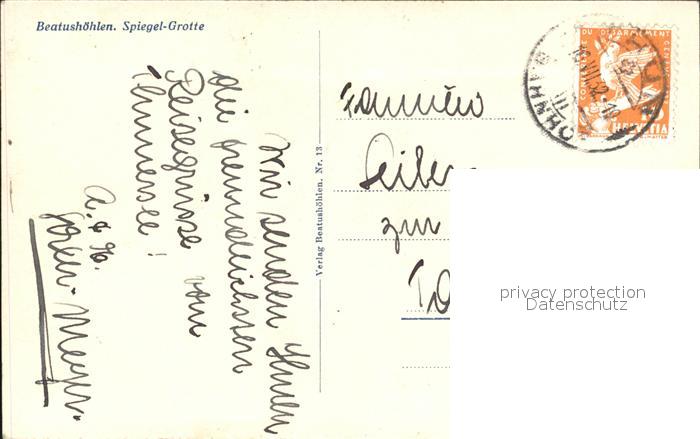 Beatushöhlen. Spiegel-Grotte
Wir senden Ihnen
die freundlichsten
Reisegrüsse vom
Thunersee!
A. & H.
Meyer
Verlag Beatushöhlen. Nr. 13
Familie
zur
CONFERENCE DU DESARMEMENT GENEVE
HELVETIA
THUN
BAHNHOF
privacy protection
Datenschutz